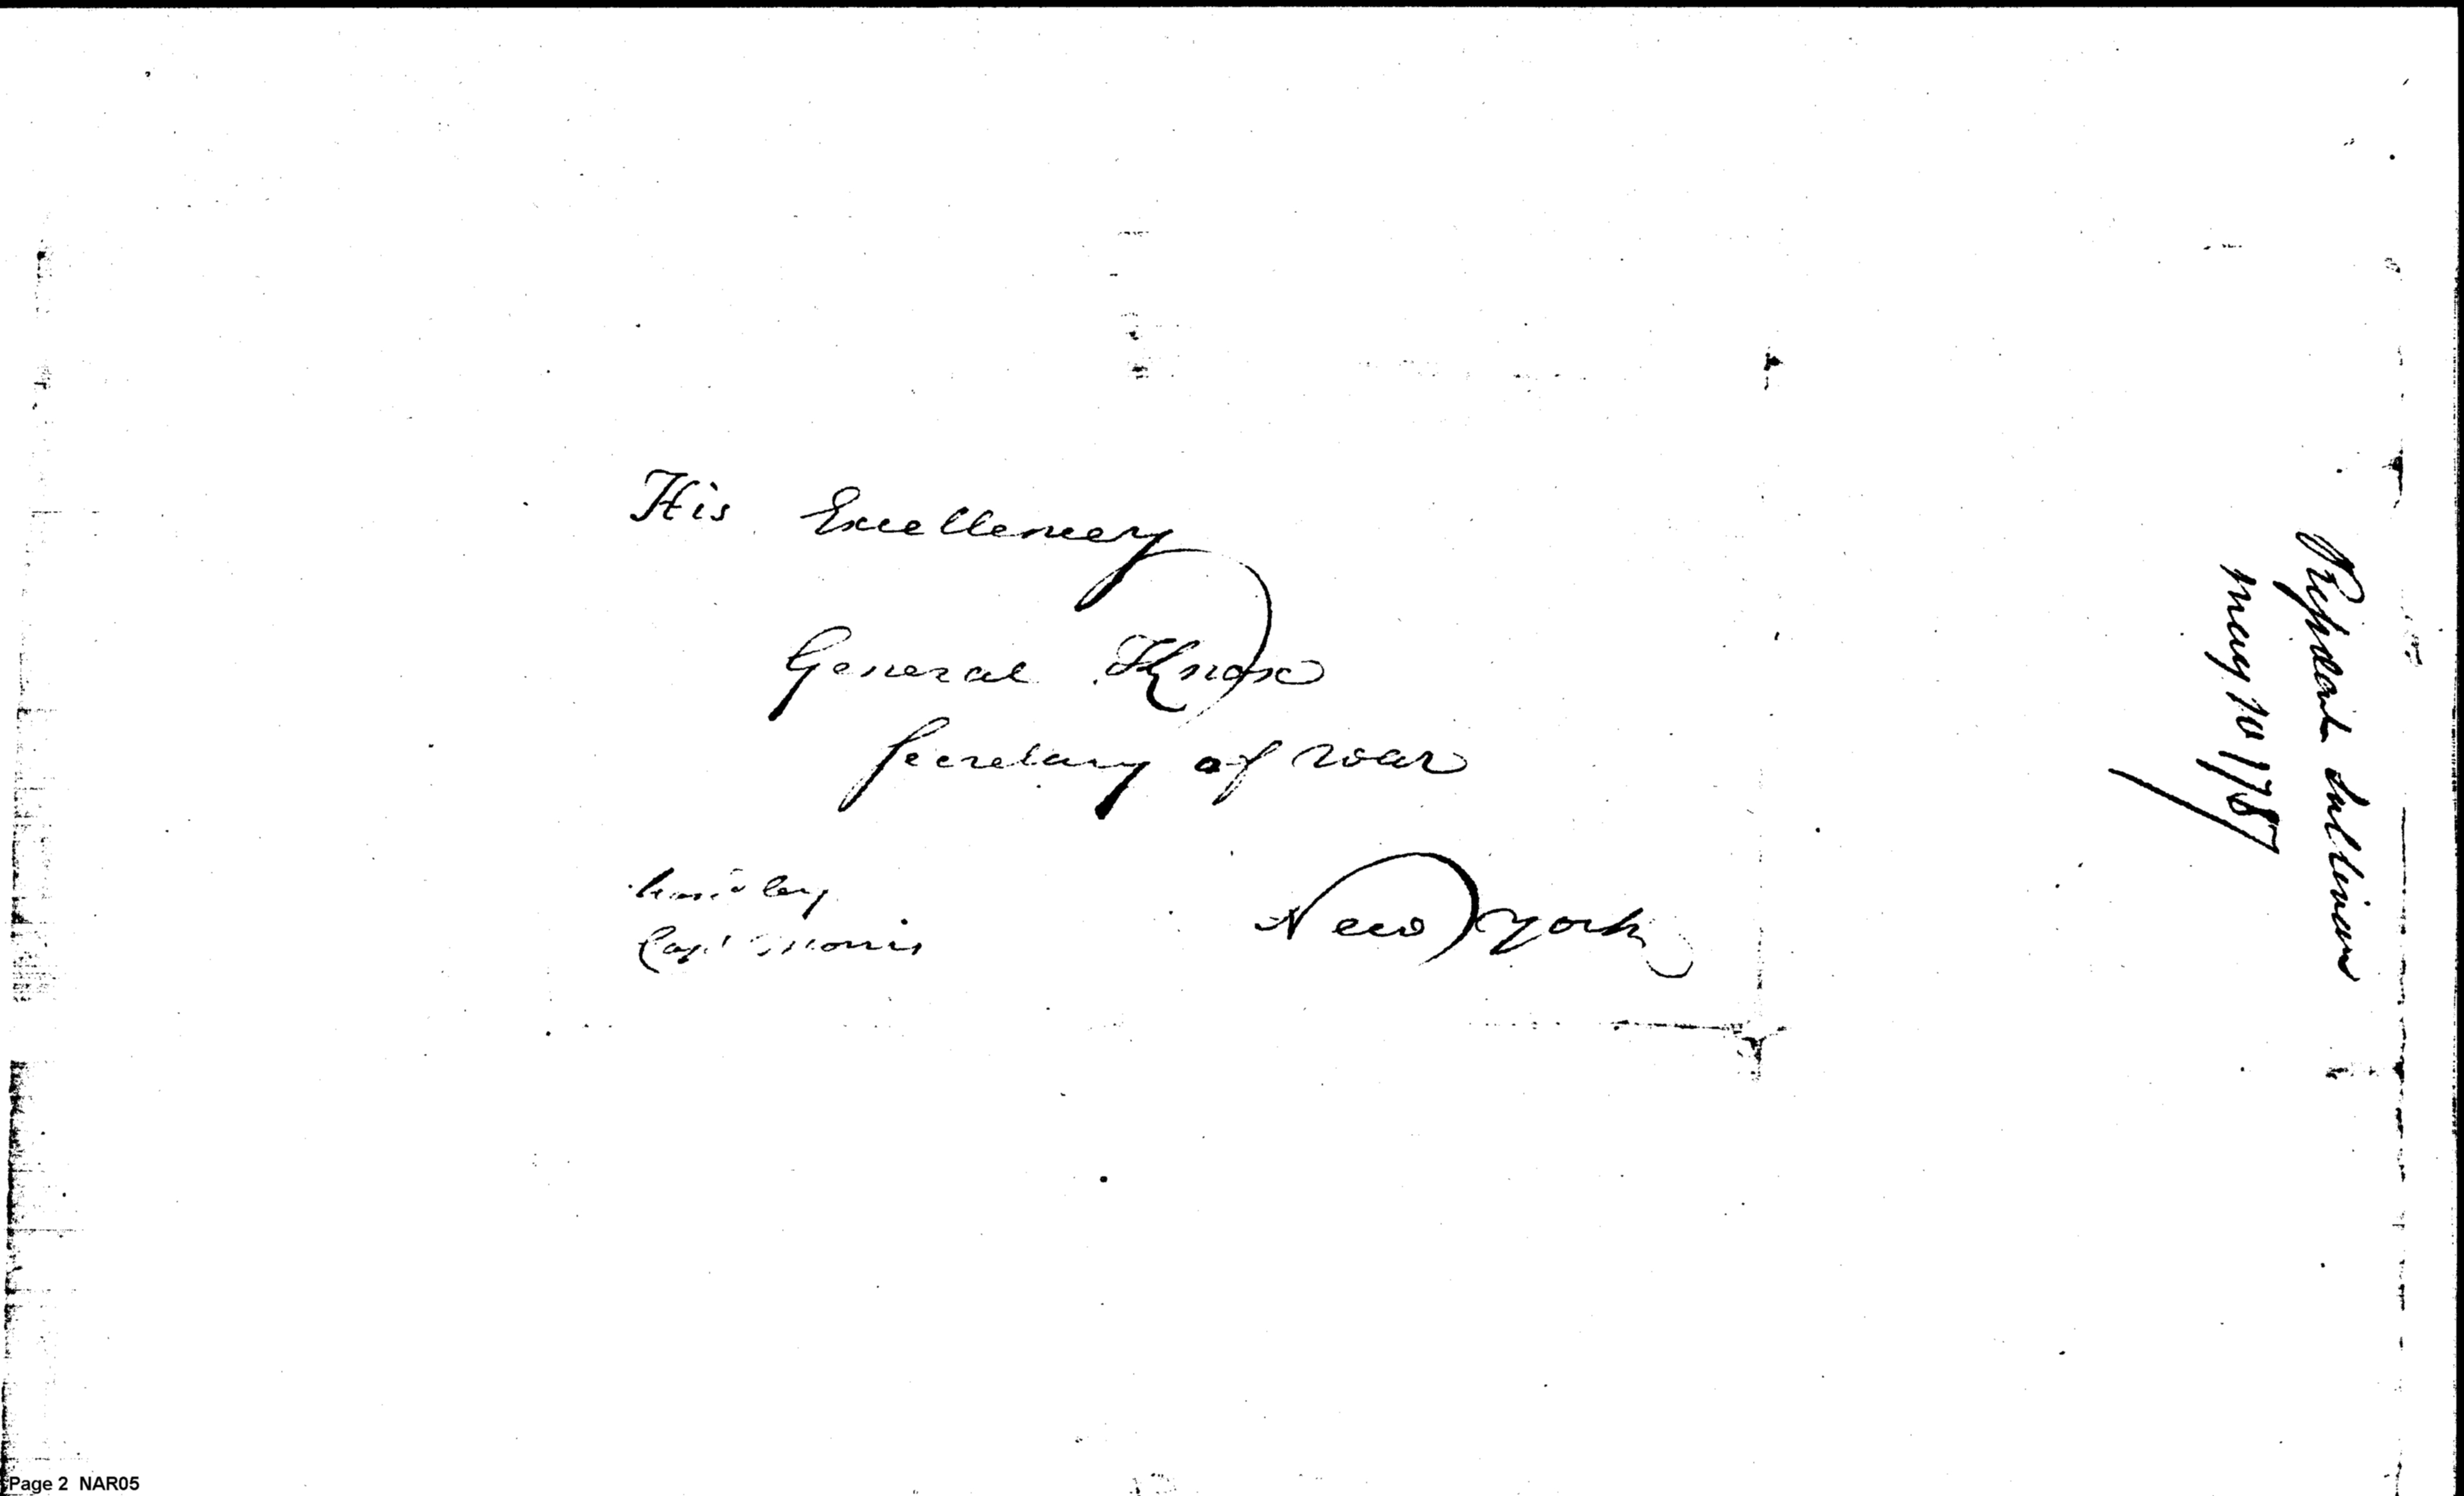 His Excellency
General Knox
Secretary of war
New york
by
Capt Morris
President Sullivan
May 10 1787
Page 2 NAR05